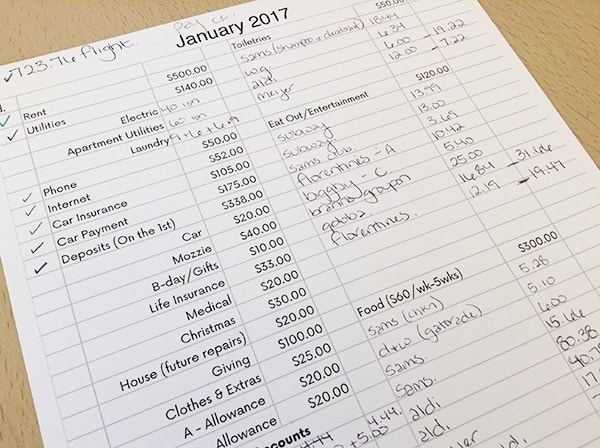 ✓723.76 flight.
pay cc
January 2017
d.
✓ Rent $500.00
✓ Utilities $140.00
Electric 40 ish
Apartment Utilities 60 ish
Laundry 9+6+6.9
✓ Phone $50.00
✓ Internet $52.00
✓ Car Insurance $105.00
✓ Car Payment $175.00
✓ Deposits (On the 1st) $338.00
Car $20.00
Mozzie $40.00
B-day/Gifts $10.00
Life Insurance $33.00
Medical $20.00
Christmas $30.00
House (future repairs) $20.00
Giving $100.00
Clothes & Extras $25.00
A - Allowance $20.00
Allowance $20.00
counts
4.44.
+5.00
Toiletries $50.00
sams (shampoo + deodorant) 18.44
w.g. 6.34
aldi 6.00 -19.22
meijer 12.00 -7.22
Eat Out/Entertainment $120.00
subway 13.99
subway 13.00
sams club 3.69
florentines - A 10.42
- C 5.40
groupon 25.00
qdoba 16.84 -31.66
florentines. 12.19 -19.47
Food ($60/wk-5wks) $300.00
sams (chkn) 5.28
d+w (gatorade) 5.10
sams. 6.00
sams. 15.66
aldi 80.38
aldi 40.7
17.